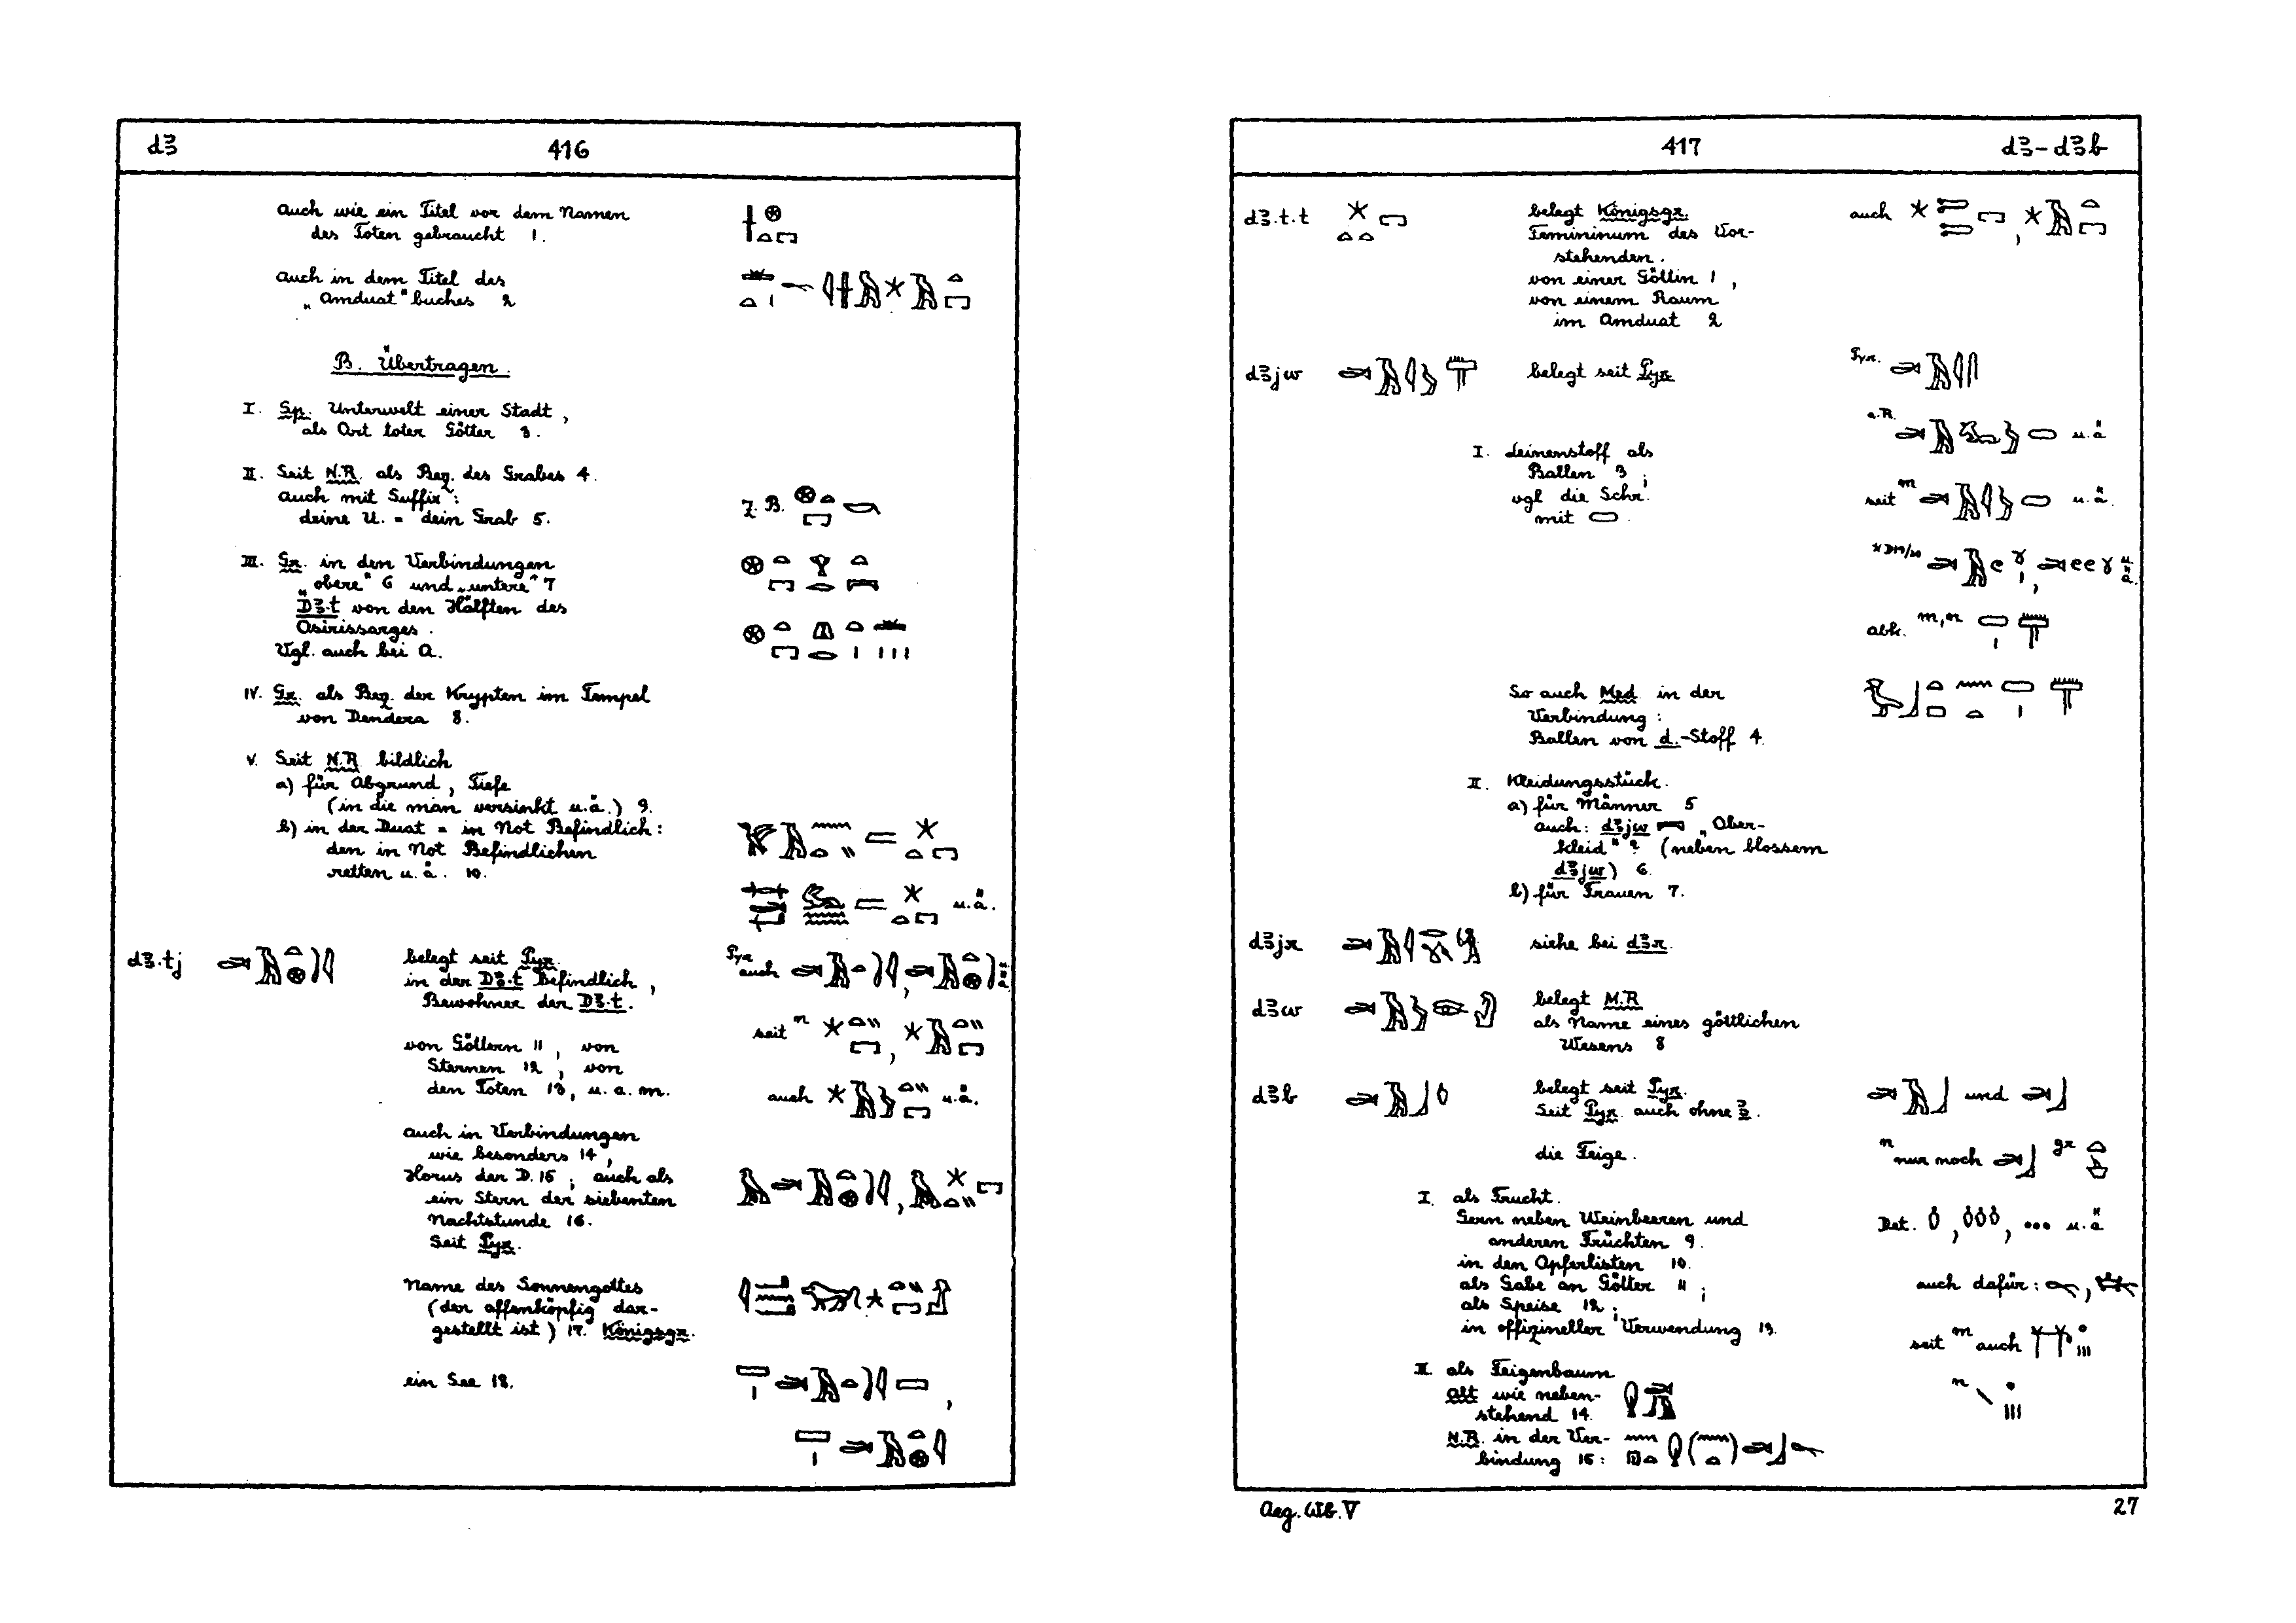 dꜣ 416
auch wie ein Titel vor dem Namen
des Toten gebraucht 1.
auch in dem Titel des
„Amduat"buches 2
B. Übertragen.
I. Sp. Unterwelt einer Stadt,
als Ort toter Götter 3.
II. Seit N.R. als Bez. des Grabes 4.
auch mit Suffix:
deine U. = dein Grab 5. z. B.
III. Gr. in den Verbindungen
„obere" 6 und „untere" 7
Dꜣ.t von den Hälften des
Osirissarges.
Vgl. auch bei A.
IV. Gr. als Bez. der Krypten im Tempel
von Dendera 8.
V. Seit N.R. bildlich
a) für Abgrund, Tiefe
(in die man versinkt u.ä.) 9.
b) in der Duat = in Not Befindlich:
den in Not Befindlichen
retten u.ä. 10.
u.ä.
dꜣ.tj belegt seit Pyr. Pyr auch u.ä.
in der Dꜣ.t befindlich,
Bewohner der Dꜣ.t.
von Göttern 11, von seit n
Sternen 12, von
den Toten 13, u. a. m. auch u.ä.
auch in Verbindungen
wie besonders 14,
Horus der D. 15; auch als
ein Stern der siebenten
Nachtstunde 16.
Seit Pyr.
Name des Sonnengottes
(der affenköpfig dar-
gestellt ist) 17. Königsgr.
ein See 18.
417 dꜣ-dꜣb
dꜣ.t.t belegt Königsgr. auch
Femininum des Vor-
stehenden.
von einer Göttin 1,
von einem Raum
im Amduat 2
dꜣjw belegt seit Pyr. Pyr.
a.R. u.ä
I. Leinenstoff als
Ballen 3;
vgl die Schr. seit m u.ä.
mit
*D19/20 u.ä.
abk. m,n
So auch Med. in der
Verbindung:
Ballen von d.-Stoff 4.
II. Kleidungsstück.
a) für Männer 5
auch: dꜣjw „Ober-
kleid"? (neben blossem
dꜣjw) 6.
b) für Frauen 7.
dꜣjr siehe bei dꜣr.
dꜣw belegt M.R.
als Name eines göttlichen
Wesens 8
dꜣb belegt seit Pyr. und
Seit Pyr. auch ohne ꜣ.
die Feige. n nur noch gr
I. als Frucht.
Gern neben Weinbeeren und Det. u.ä
anderen Früchten 9.
in den Opferlisten 10.
als Gabe an Götter 11; auch dafür:
als Speise 12;
in offizineller Verwendung 13. seit m auch
II als Feigenbaum
Alt wie neben- n
stehend 14.
N.R. in der Ver-
bindung 15:
Aeg. Wb. V 27